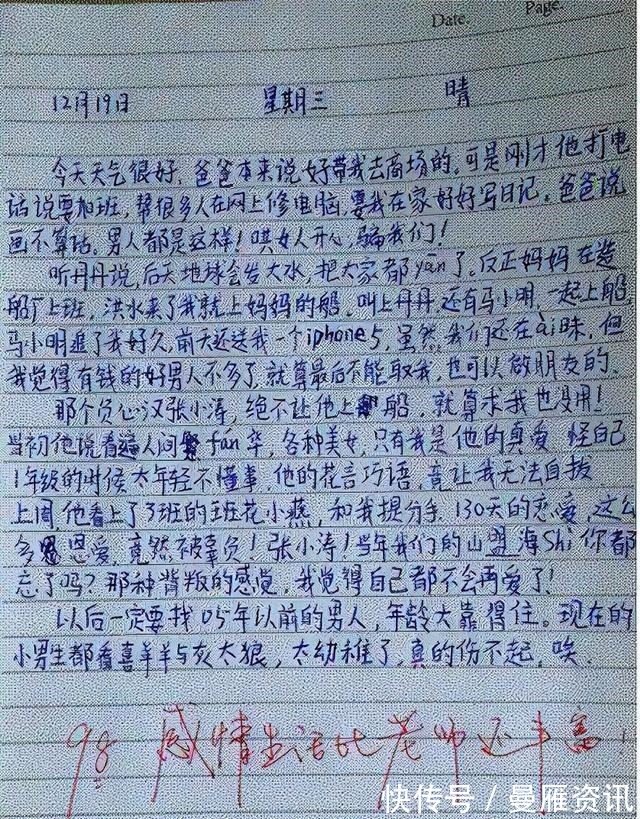 Date. Page.
12月19日 星期三 晴
今天天气很好,爸爸本来说好带我去商场的,可是刚才他打电
话说要加班,帮很多人在网上修电脑,要我在家好好写日记。爸爸说
画不算话,男人都是这样!哄女人开心,骗我们!
听丹丹说,后天地球会发大水,把大家都yān了。反正妈妈在造
船厂上班,洪水来了我就上妈妈的船,叫上丹丹,还有马小明,一起上船
马小明追了我好久,前天还送我一个iphone5,虽然我们还在ài昧,但
我觉得有钱的好男人不多了,就算最后不能取我,也可以做朋友的。
那个负心汉张小涛,绝不让他上船,就算求我也没用!
当初他说看遍人间繁fán华,各种美女,只有我是他的真爱 怪自己
1年级的时候太年轻不懂事,他的花言巧语,竟让我无法自拔
上周他看上了3班的班花小燕,和我提分手,130天的恋爱,这么
多恩爱,竟然被辜负!张小涛!当年我们的山盟海Shi你都
忘了吗?那种背叛的感觉,我觉得自己都不会再爱了!
以后一定要找05年以前的男人,年龄大靠得住。现在的
小男生都看喜羊羊与灰太狼,太幼稚了,真的伤不起,唉.
98 感情生活比老师还丰富!
快传号/曼雁资讯